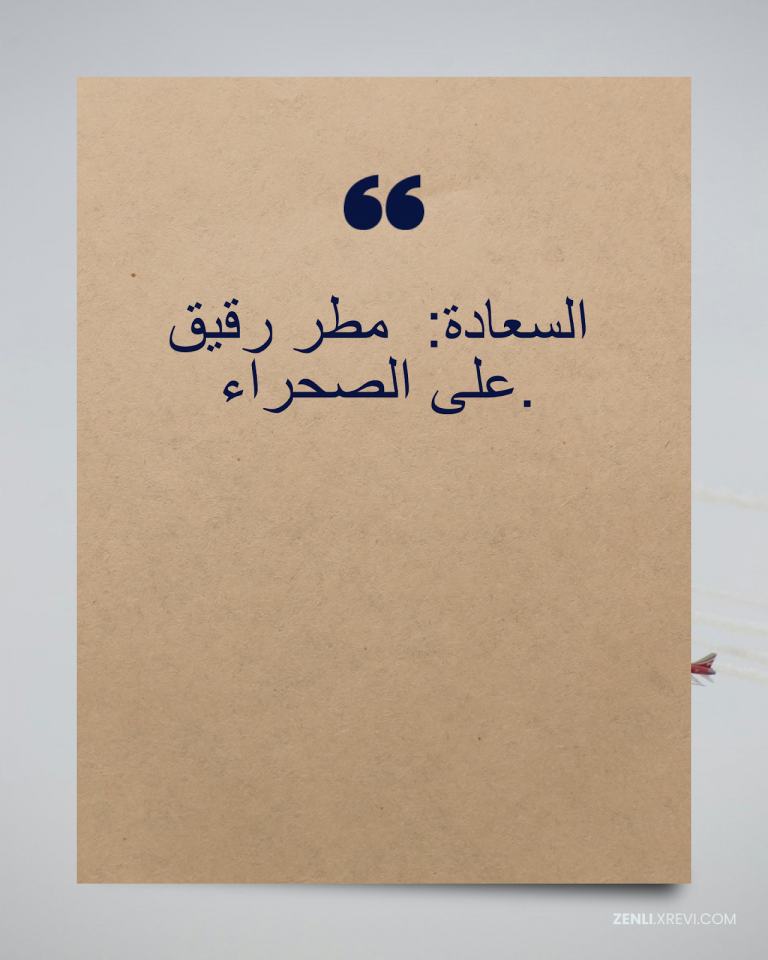 السعادة:  مطر رقيق
على الصحراء.
ZENLI.XREVI.COM